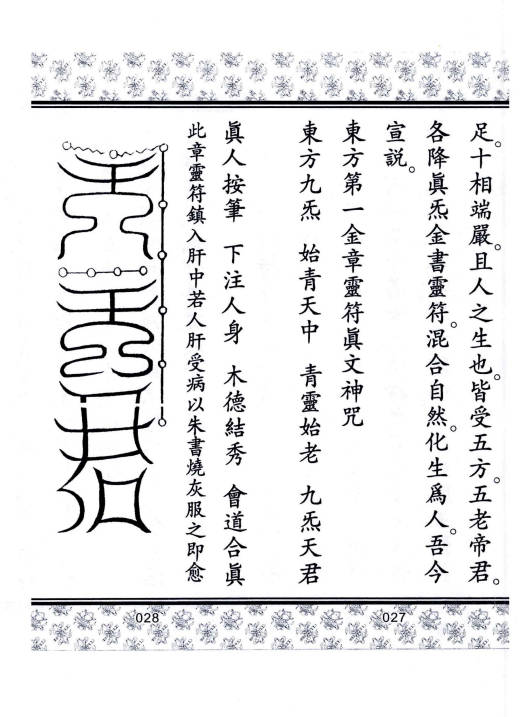 足。十相端嚴。且人之生也。皆受五方。五老帝君。
各降眞炁金書靈符。混合自然。化生爲人。吾今
宣説。
東方第一金章靈符眞文神咒
東方九炁　始青天中　青靈始老　九炁天君
眞人按筆　下注人身　木德結秀　會道合眞
此章靈符鎮入肝中若人肝受病以朱書燒灰服之即愈
027
028